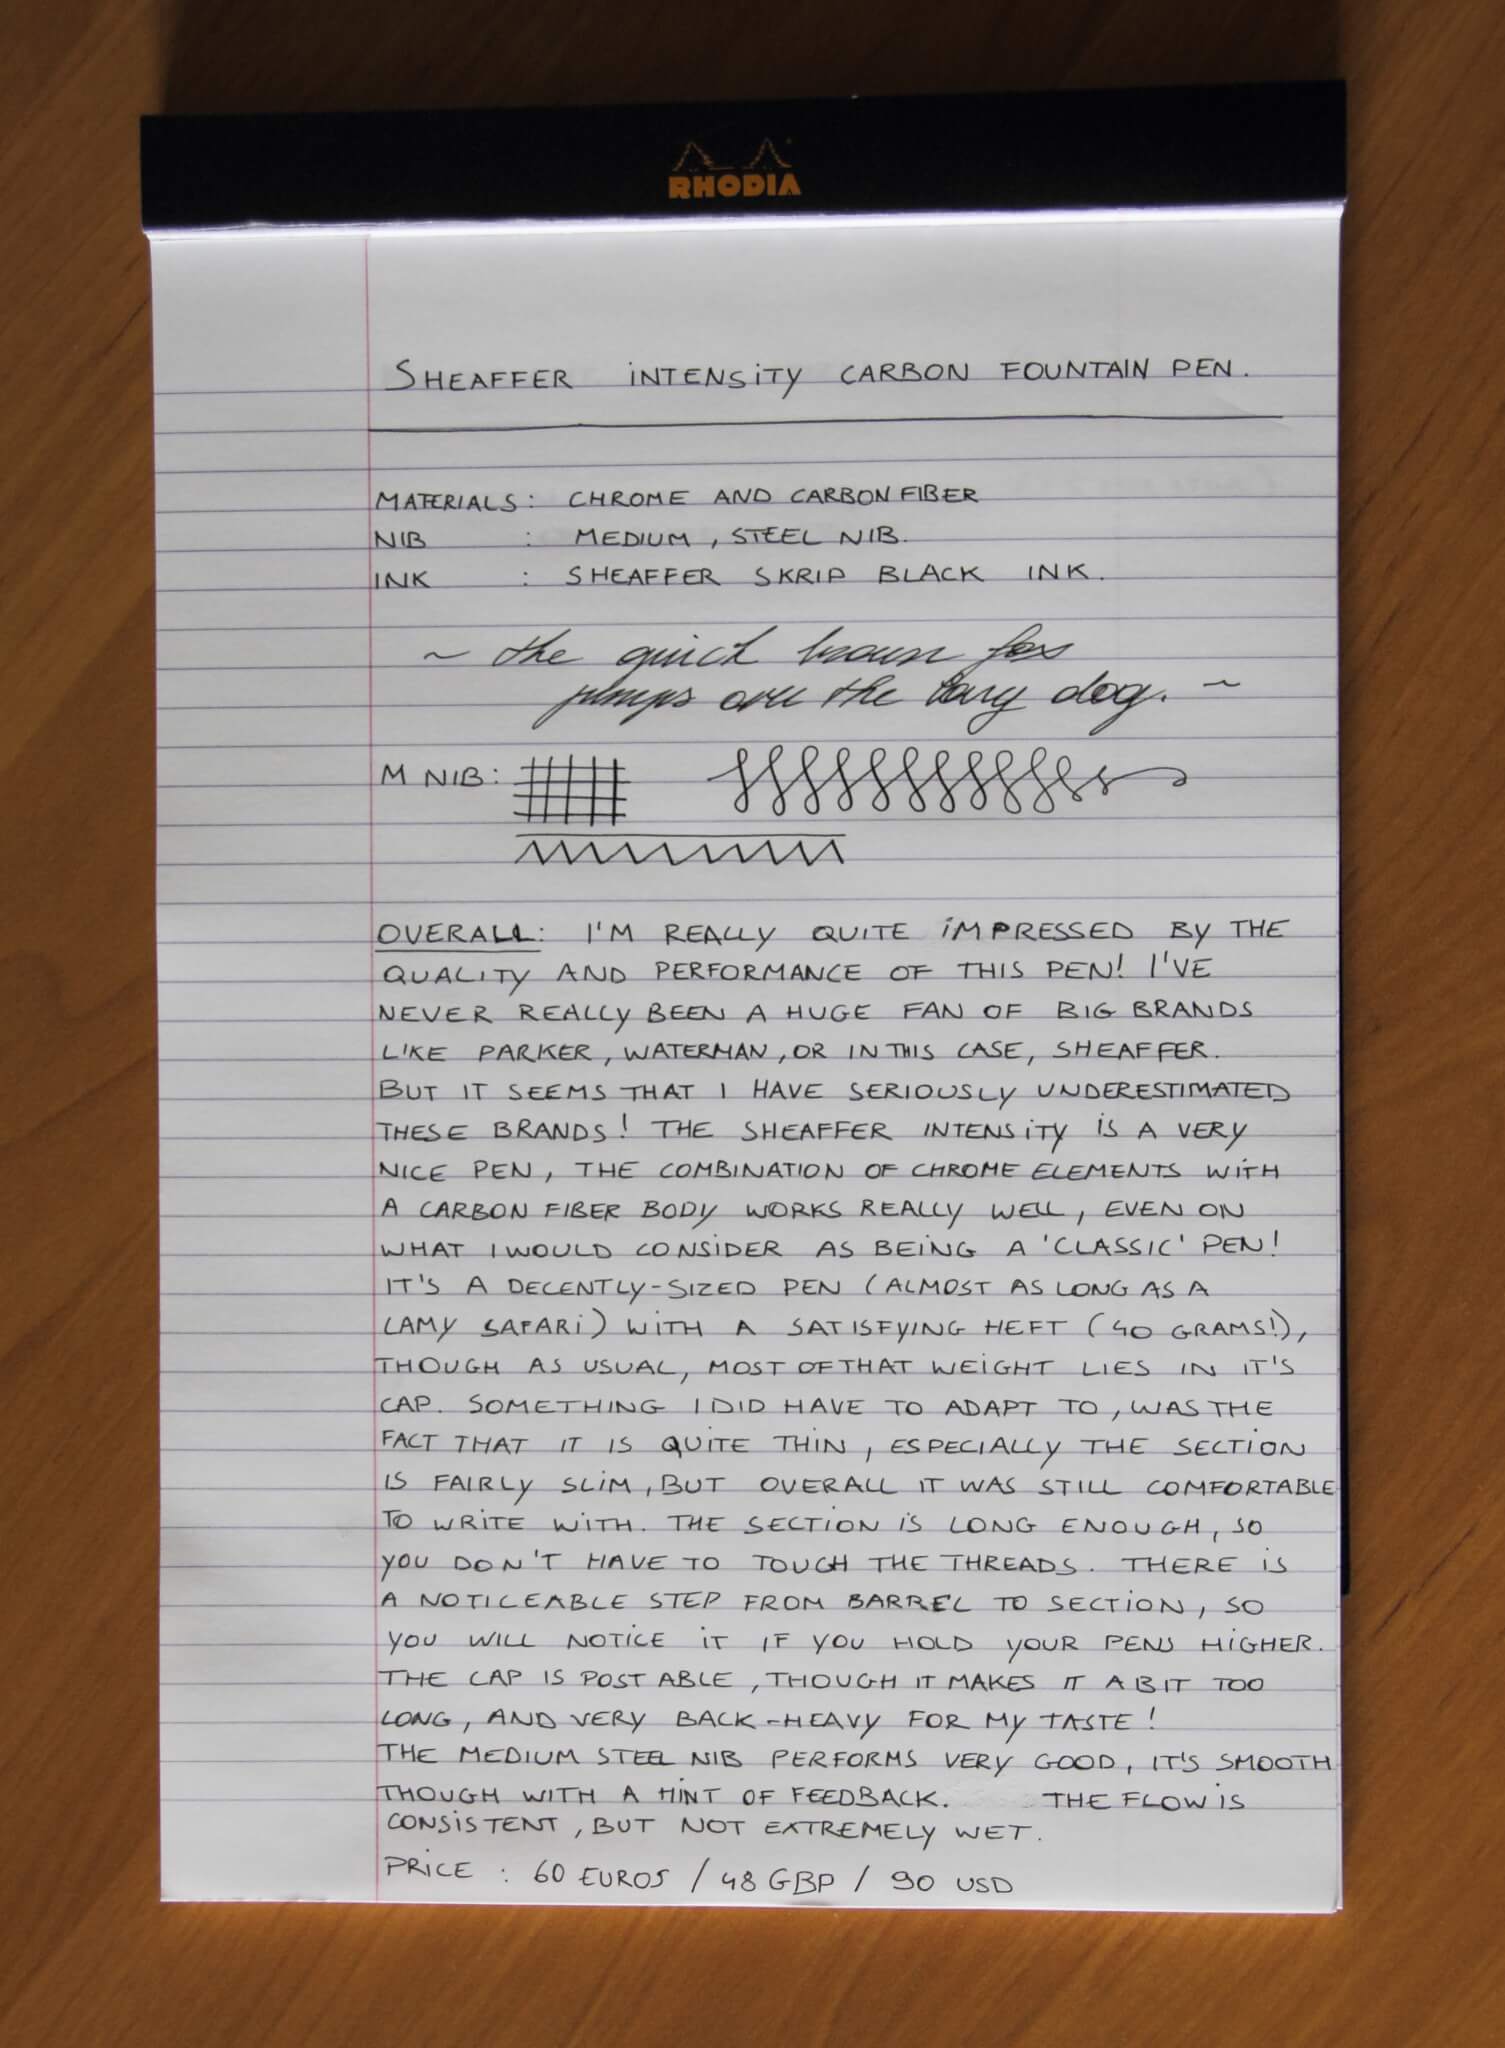 RHODIA
SHEAFFER INTENSITY CARBON FOUNTAIN PEN.
MATERIALS: CHROME AND CARBON FIBER
NIB : MEDIUM, STEEL NIB.
INK : SHEAFFER SKRIP BLACK INK.
~ the quick brown fox
jumps over the lazy dog. ~
M NIB:
OVERALL: I'M REALLY QUITE IMPRESSED BY THE
QUALITY AND PERFORMANCE OF THIS PEN! I'VE
NEVER REALLY BEEN A HUGE FAN OF BIG BRANDS
LIKE PARKER, WATERMAN, OR IN THIS CASE, SHEAFFER.
BUT IT SEEMS THAT I HAVE SERIOUSLY UNDERESTIMATED
THESE BRANDS! THE SHEAFFER INTENSITY IS A VERY
NICE PEN, THE COMBINATION OF CHROME ELEMENTS WITH
A CARBON FIBER BODY WORKS REALLY WELL, EVEN ON
WHAT I WOULD CONSIDER AS BEING A 'CLASSIC' PEN!
IT'S A DECENTLY-SIZED PEN (ALMOST AS LONG AS A
LAMY SAFARI) WITH A SATISFYING HEFT (40 GRAMS!),
THOUGH AS USUAL, MOST OF THAT WEIGHT LIES IN IT'S
CAP. SOMETHING I DID HAVE TO ADAPT TO, WAS THE
FACT THAT IT IS QUITE THIN, ESPECIALLY THE SECTION
IS FAIRLY SLIM, BUT OVERALL IT WAS STILL COMFORTABLE
TO WRITE WITH. THE SECTION IS LONG ENOUGH, SO
YOU DON'T HAVE TO TOUGH THE THREADS. THERE IS
A NOTICEABLE STEP FROM BARREL TO SECTION, SO
YOU WILL NOTICE IT IF YOU HOLD YOUR PENS HIGHER.
THE CAP IS POSTABLE, THOUGH IT MAKES IT A BIT TOO
LONG, AND VERY BACK-HEAVY FOR MY TASTE!
THE MEDIUM STEEL NIB PERFORMS VERY GOOD, IT'S SMOOTH
THOUGH WITH A HINT OF FEEDBACK. THE FLOW IS
CONSISTENT, BUT NOT EXTREMELY WET.
PRICE : 60 EUROS / 48 GBP / 90 USD